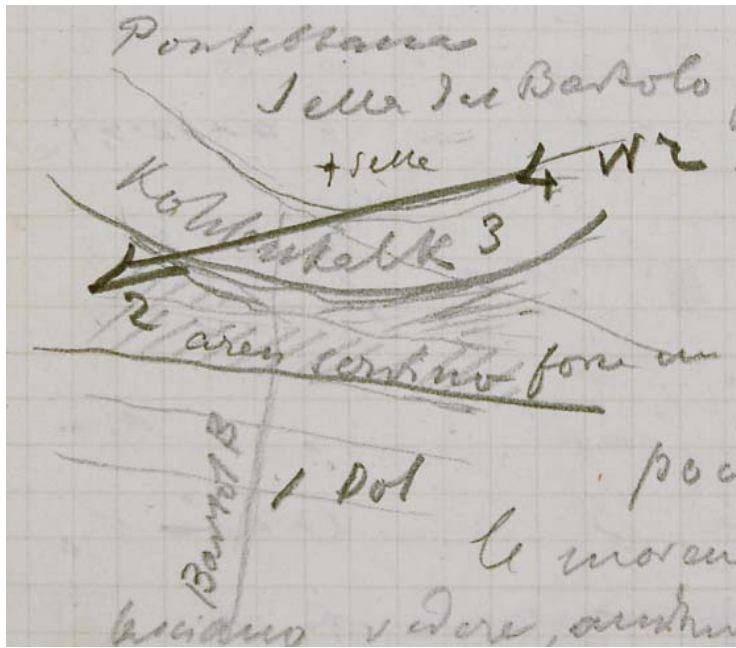 Pontebbana
Sella del Bartolo
+ Selle
4 W 2
Kohlenkalk 3
2
aren servino forse un
1 Dol
Bartol B
poc
le moren
lasciano vedere, andiam